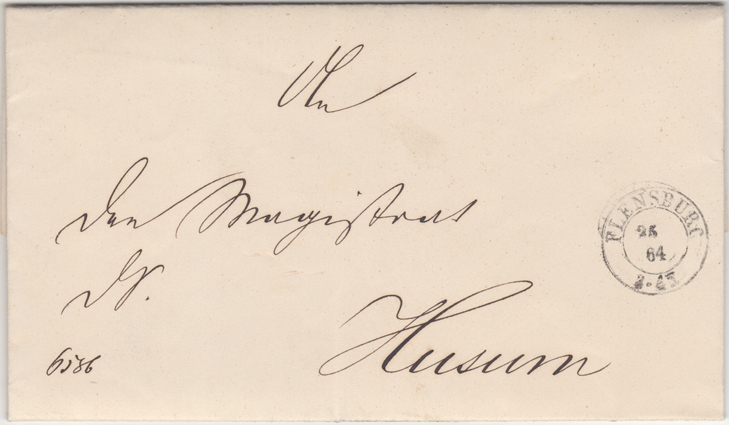 An
den Magistrat
Husum
6586
FLENSBURG
64